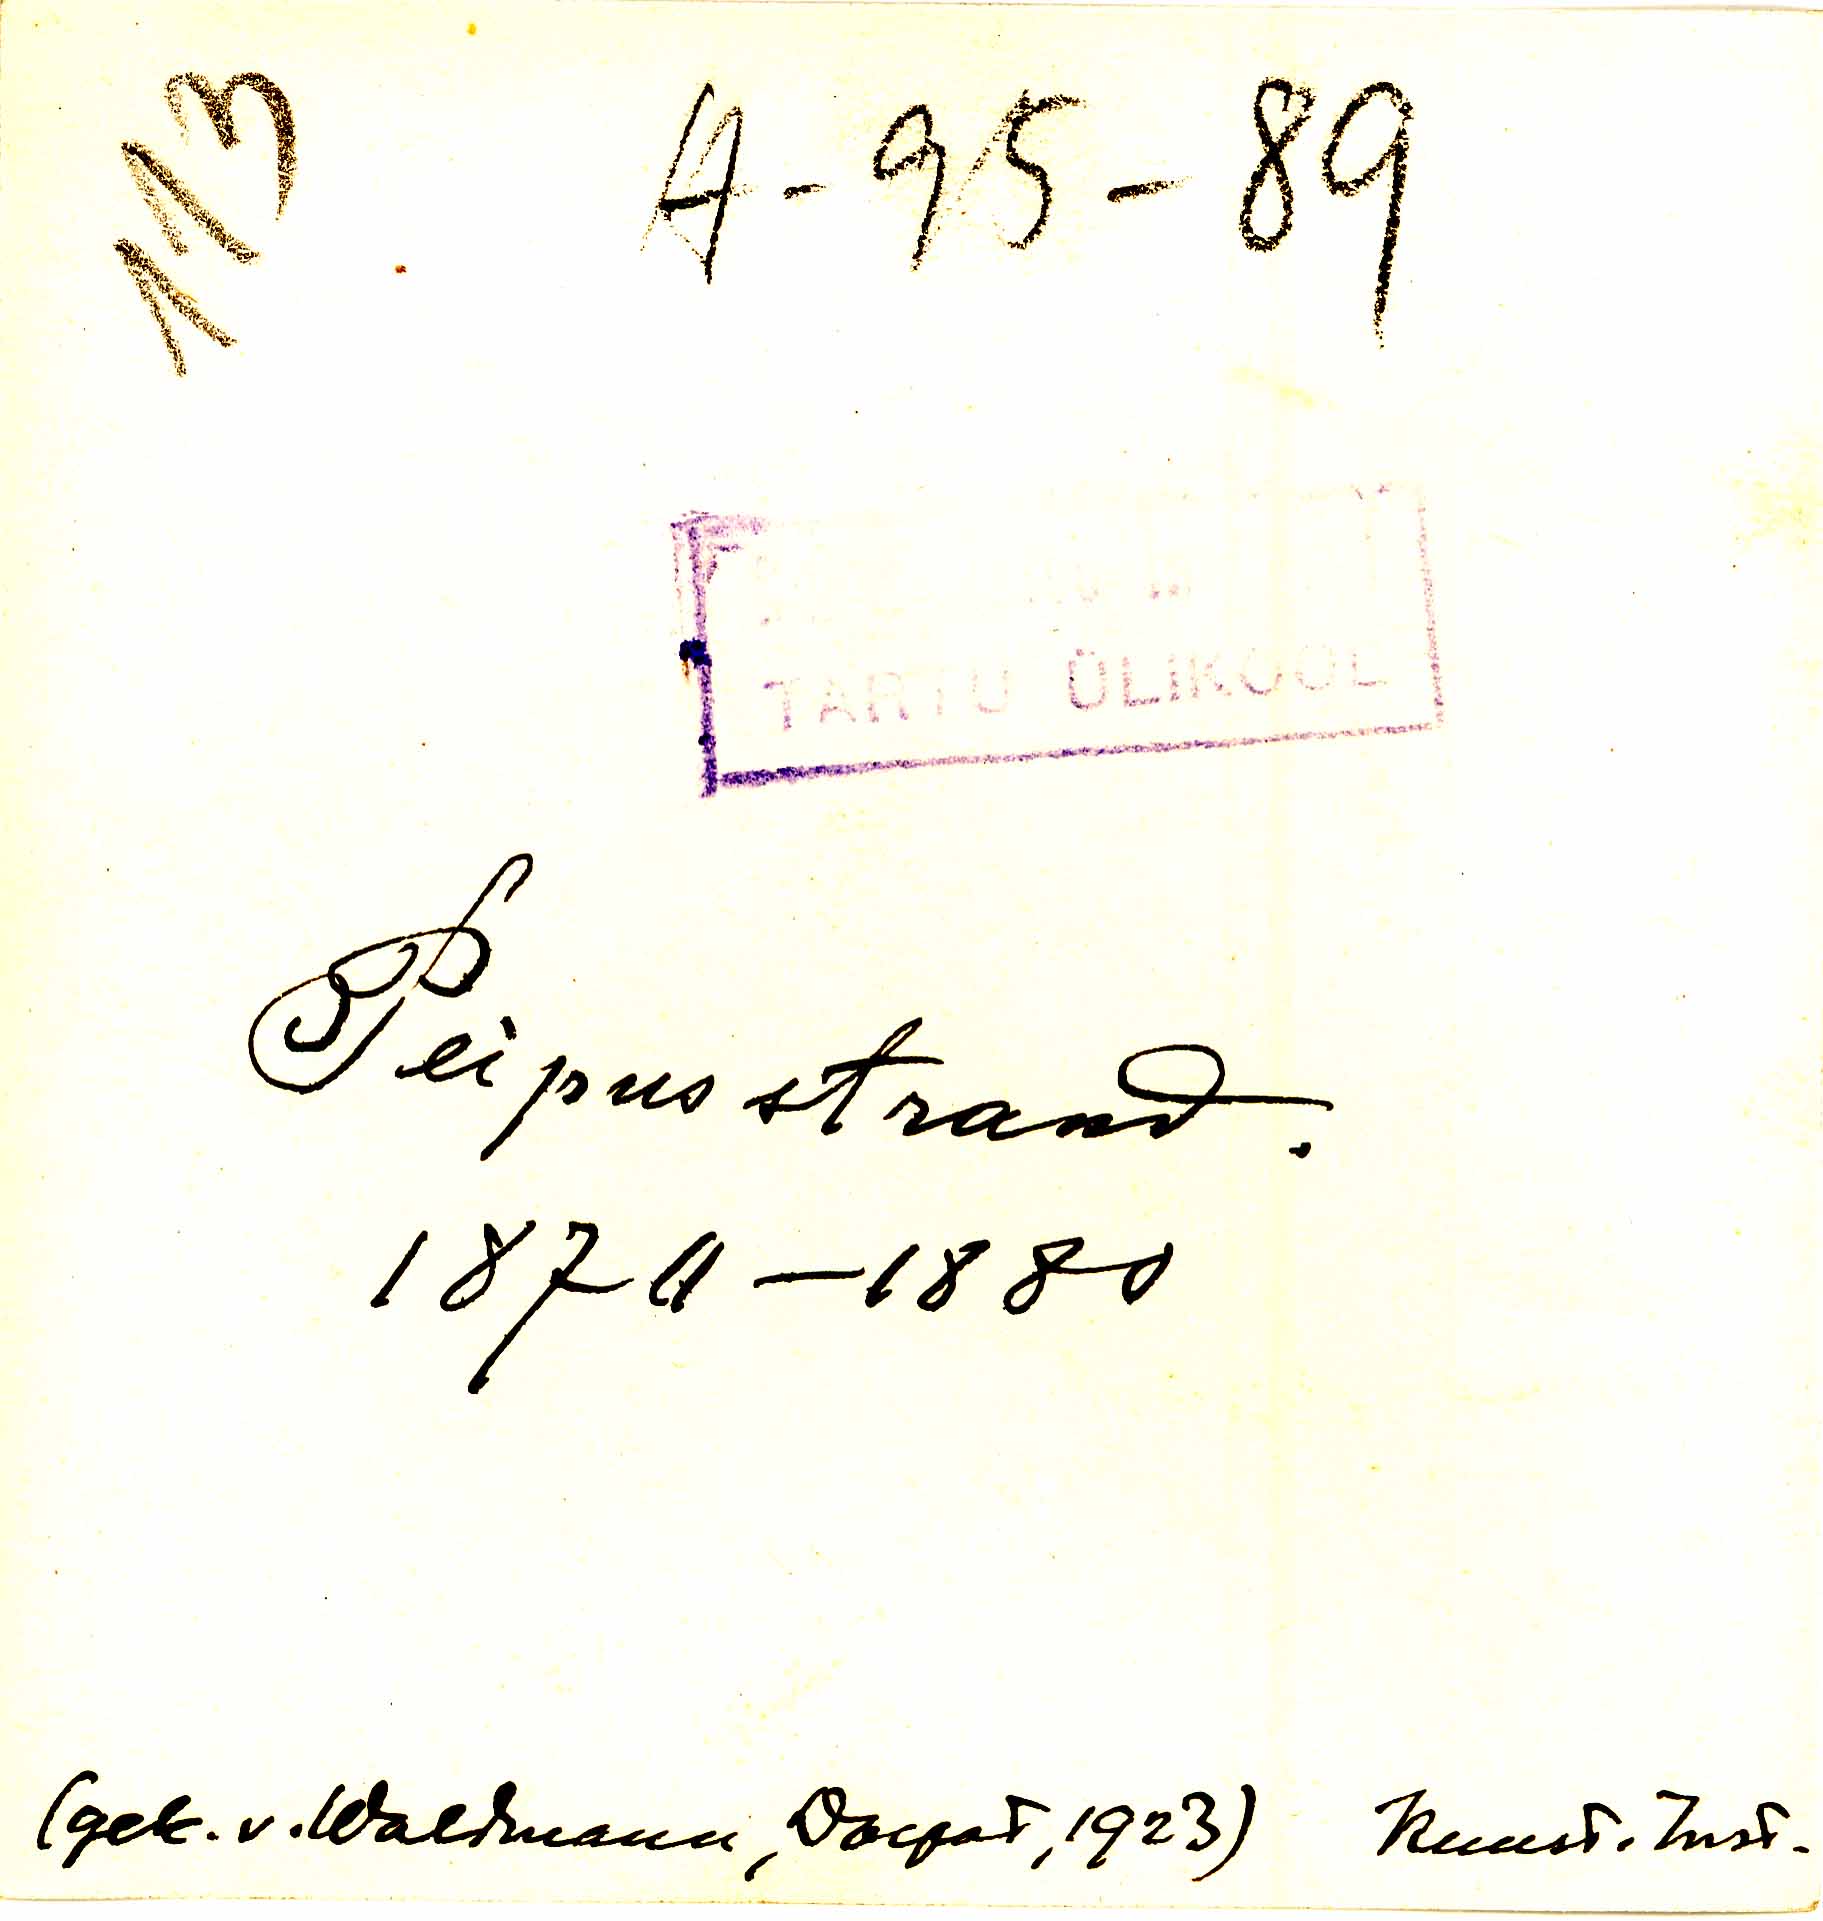 113
A-95-89
TARTU ÜLIKOOL
Peipusstrand.
1870-1880
(gek. v. Waldmann, Dorpat, 1923) Kunst. Inst.